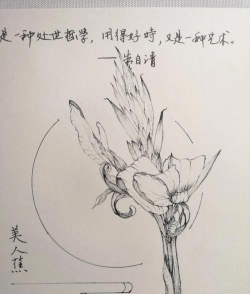 是一种处世哲学，用得好时，又是一种艺术。
——朱自清
美人蕉